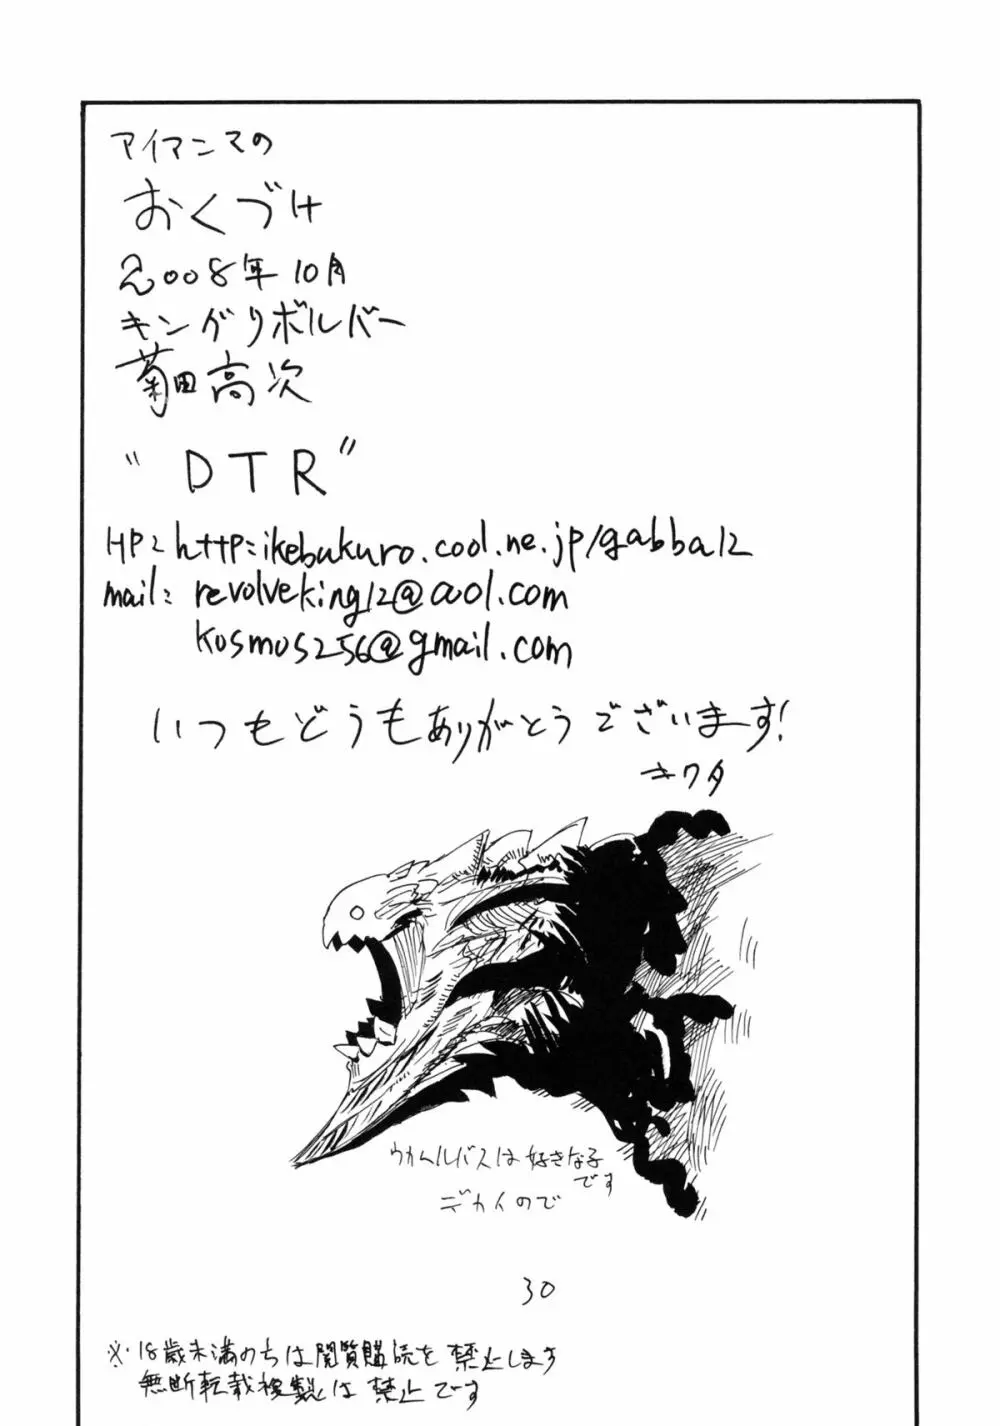 アイマンマの
おくづけ
2008年10月
キングリボルバー
菊田高次
"DTR"
HP: http:ikebukuro.cool.ne.jp/gabba12
mail: revolveking12@aol.com
kosmos256@gmail.com
いつもどうもありがとうございます!
キワタ
ウカムルバスは好きな子
です
デカイので
30
※18歳未満のちは閲覧購読を禁止します
無断転載複製は禁止です